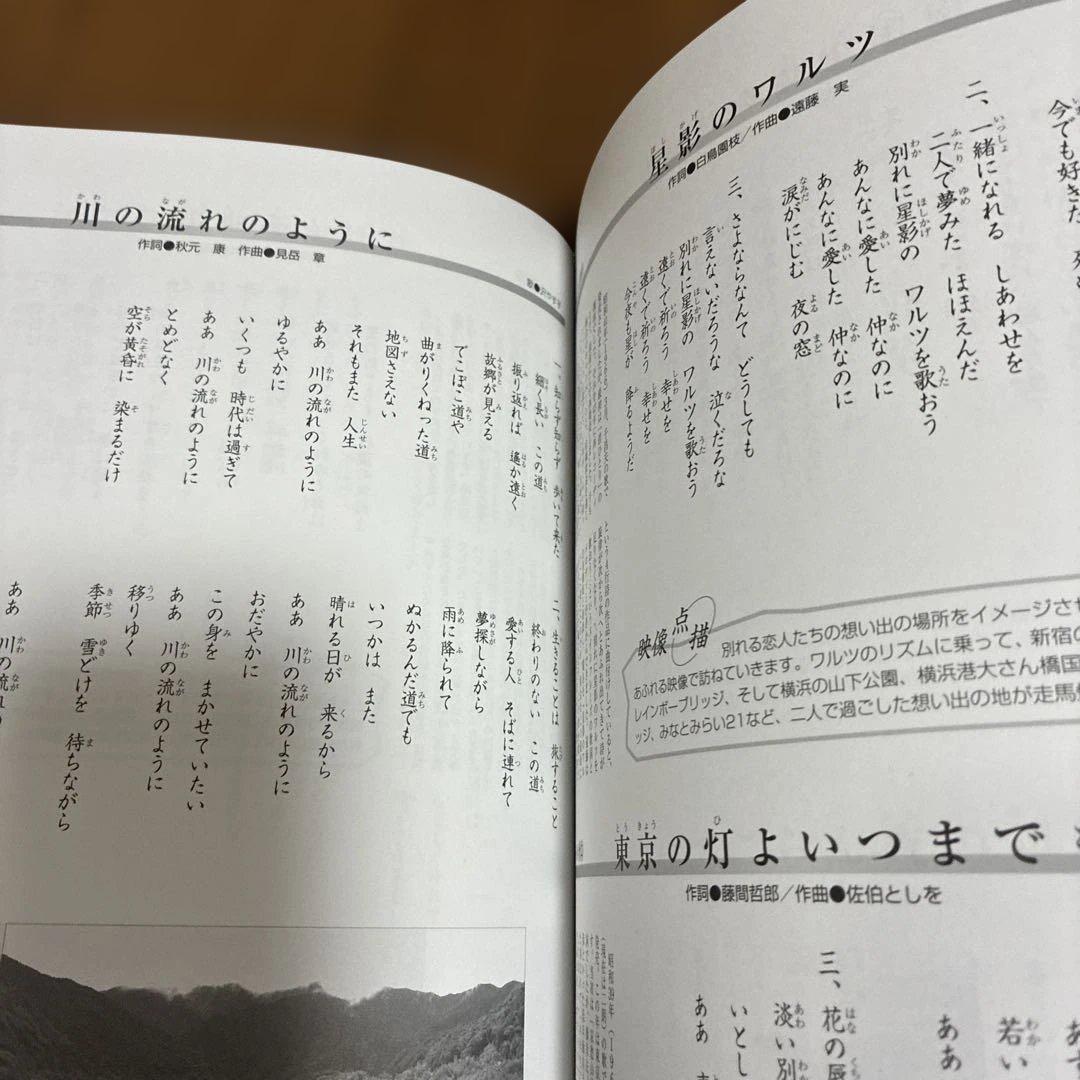 川の流れのように
作詞●秋元 康 作曲●見岳 章
一、知らず知らず 歩いて来た
細く長い この道
振り返れば 遙か遠く
故郷が見える
でこぼこ道や
曲がりくねった道
地図さえない
それもまた 人生
ああ 川の流れのように
ゆるやかに
いくつも 時代は過ぎて
ああ 川の流れのように
とめどなく
空が黄昏に 染まるだけ
二、生きることは 旅すること
終わりのない この道
愛する人 そばに連れて
夢探しながら
雨に降られて
ぬかるんだ道でも
いつかは また
晴れる日が 来るから
ああ 川の流れのように
おだやかに
この身を まかせていたい
ああ 川の流れのように
移りゆく
季節 雪どけを 待ちながら
ああ 川の流
星影のワルツ
作詞●白鳥園枝/作曲●遠藤 実
今でも好きだ
二、一緒になれる しあわせを
二人で夢みた ほほえんだ
別れに星影の ワルツを歌おう
あんなに愛した 仲なのに
あんなに愛した 仲なのに
涙がにじむ 夜の窓
三、さよならなんて どうしても
言えないだろうな 泣くだろな
別れに星影の ワルツを歌おう
遠くで祈ろう 幸せを
遠くで祈ろう 幸せを
今夜も星が 降るようだ
映像点描
別れる恋人たちの想い出の場所をイメージさせ
あふれる映像で訪ねていきます。ワルツのリズムに乗って、新宿の
レインボーブリッジ、そして横浜の山下公園、横浜港大さん橋国
ッジ、みなとみらい21など、二人で過ごした想い出の地が走馬
東京の灯よいつまで
作詞●藤間哲郎/作曲●佐伯としを
若い
ああ
三、花の唇
淡い別
いとし
ああ